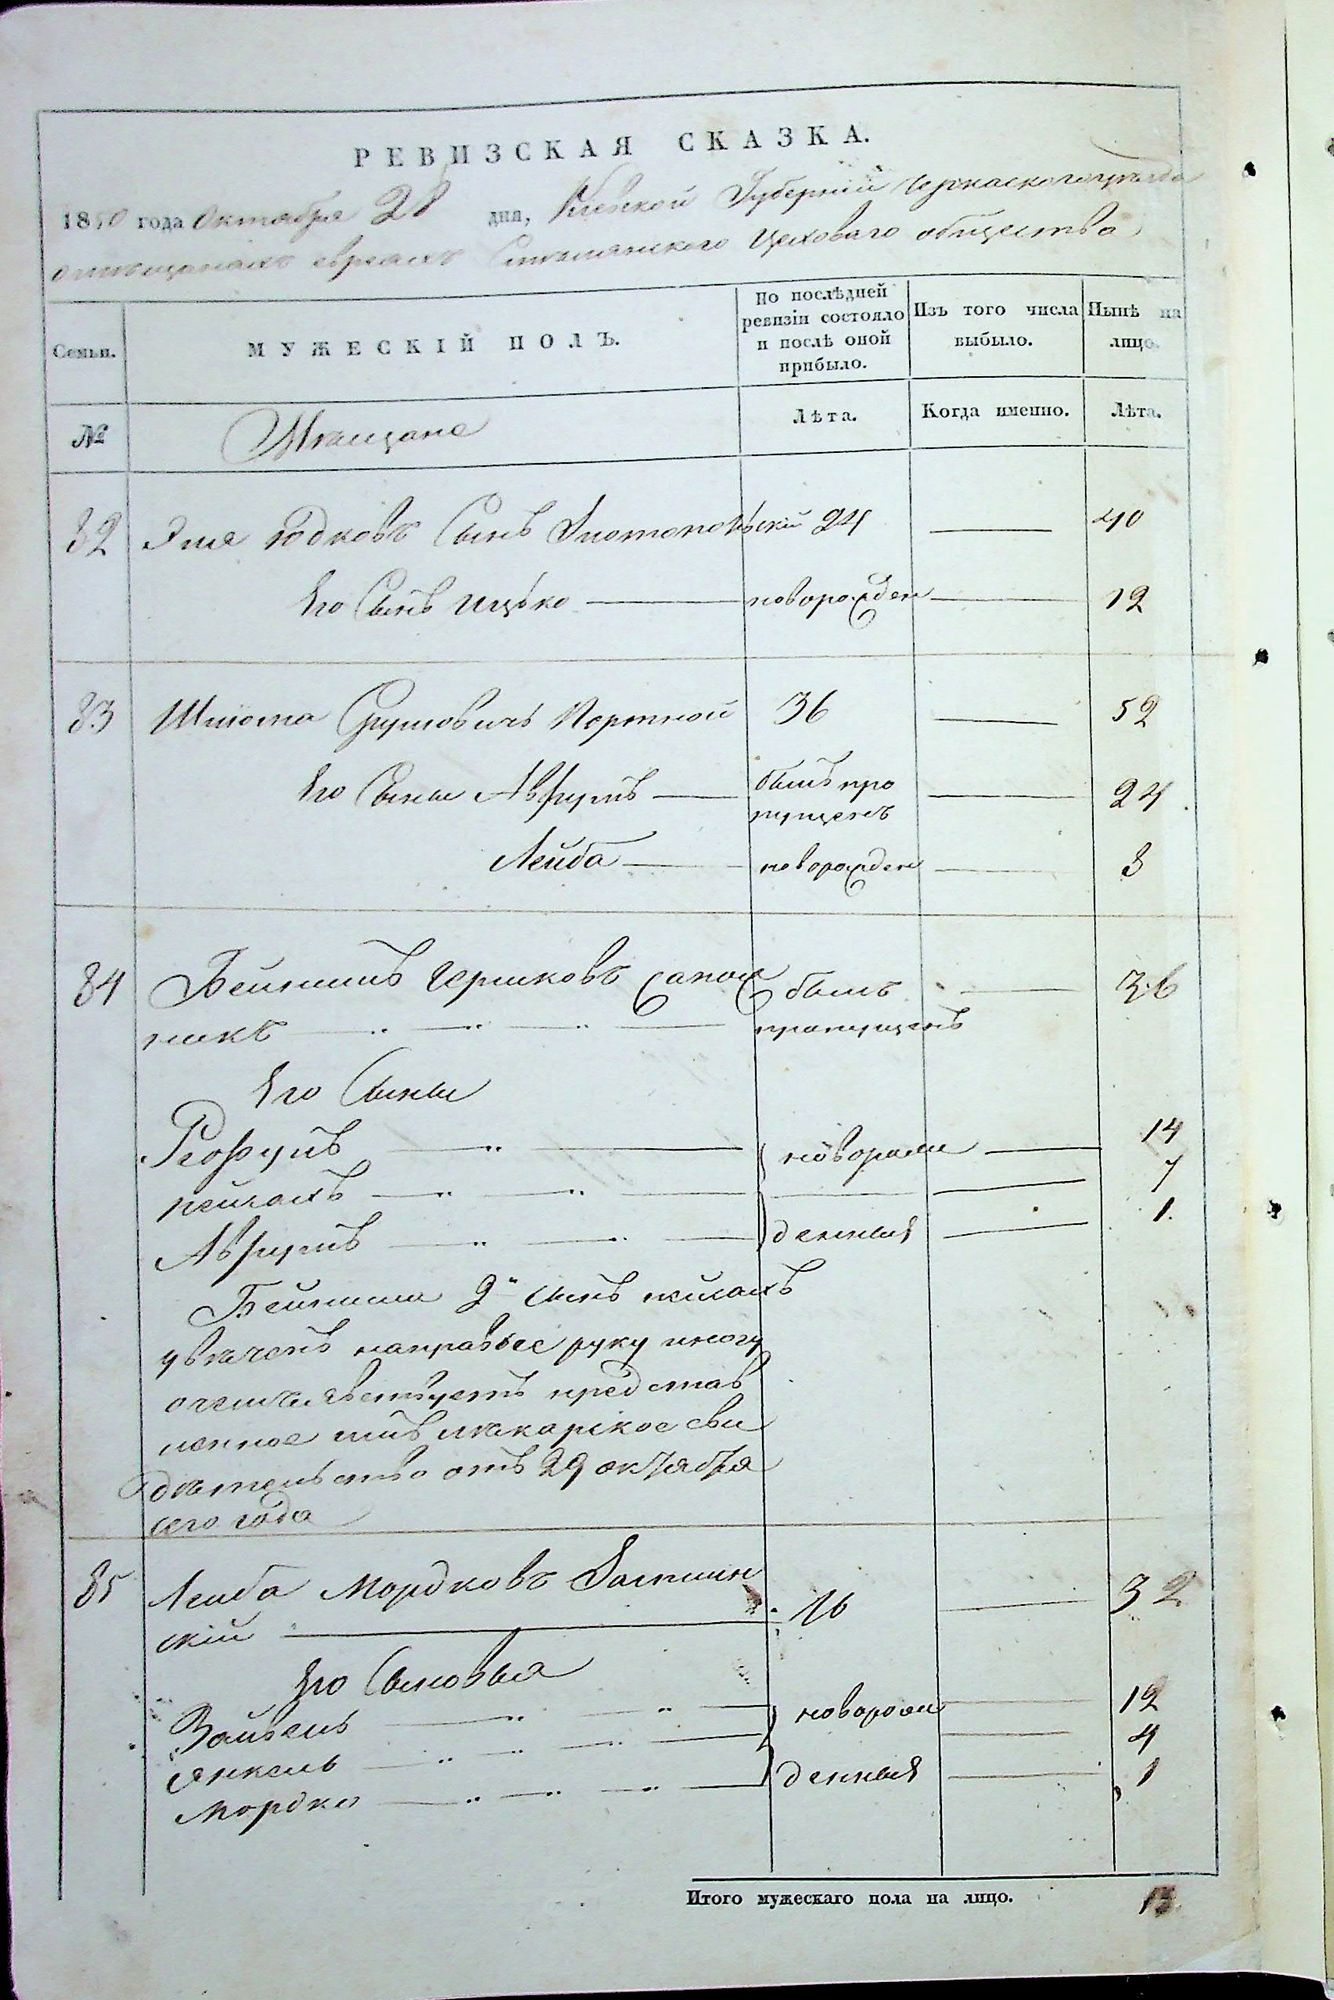 РЕВИЗСКАЯ СКАЗКА.
1850 года Октября 28 дня, Киевской Губернии Черкаского уезда
о мещанахъ евреяхъ Смелянского Цеховаго общества
Семьи.
МУЖЕСКІЙ ПОЛЪ.
По послѣдней ревизіи состояло и послѣ оной прибыло.
Изъ того числа выбыло.
Нынѣ на лицо.
№
Мещане
Лѣта.
Когда именно.
Лѣта.
82 Юдковъ Сынъ 24 40
Его Сынъ Ицько новорожден 12
83 Шлиома Сруловичъ Портной 36 52
Его Сыны Аврумъ былъ пропущенъ 24
Лейба новорожден 8
84 Бейнишъ Гершковъ Сапож был 36
никъ пропущенъ
Его Сыны
новорож 14
Пейсахъ 7
Аврумъ денныя 1
Бейниша 2й сынъ пейсахъ
увеченъ направую руку и ногу
о чемъ свидетельствуетъ представ
ленное имъ лекарское сви
детельство отъ 29 октября
сего года
85 Лейба Мордковъ 16 32
скій
Его Сыновья
Зайвель новорож 12
Янкель 4
Мордко денныя 1
Итого мужескаго пола на лицо. 13